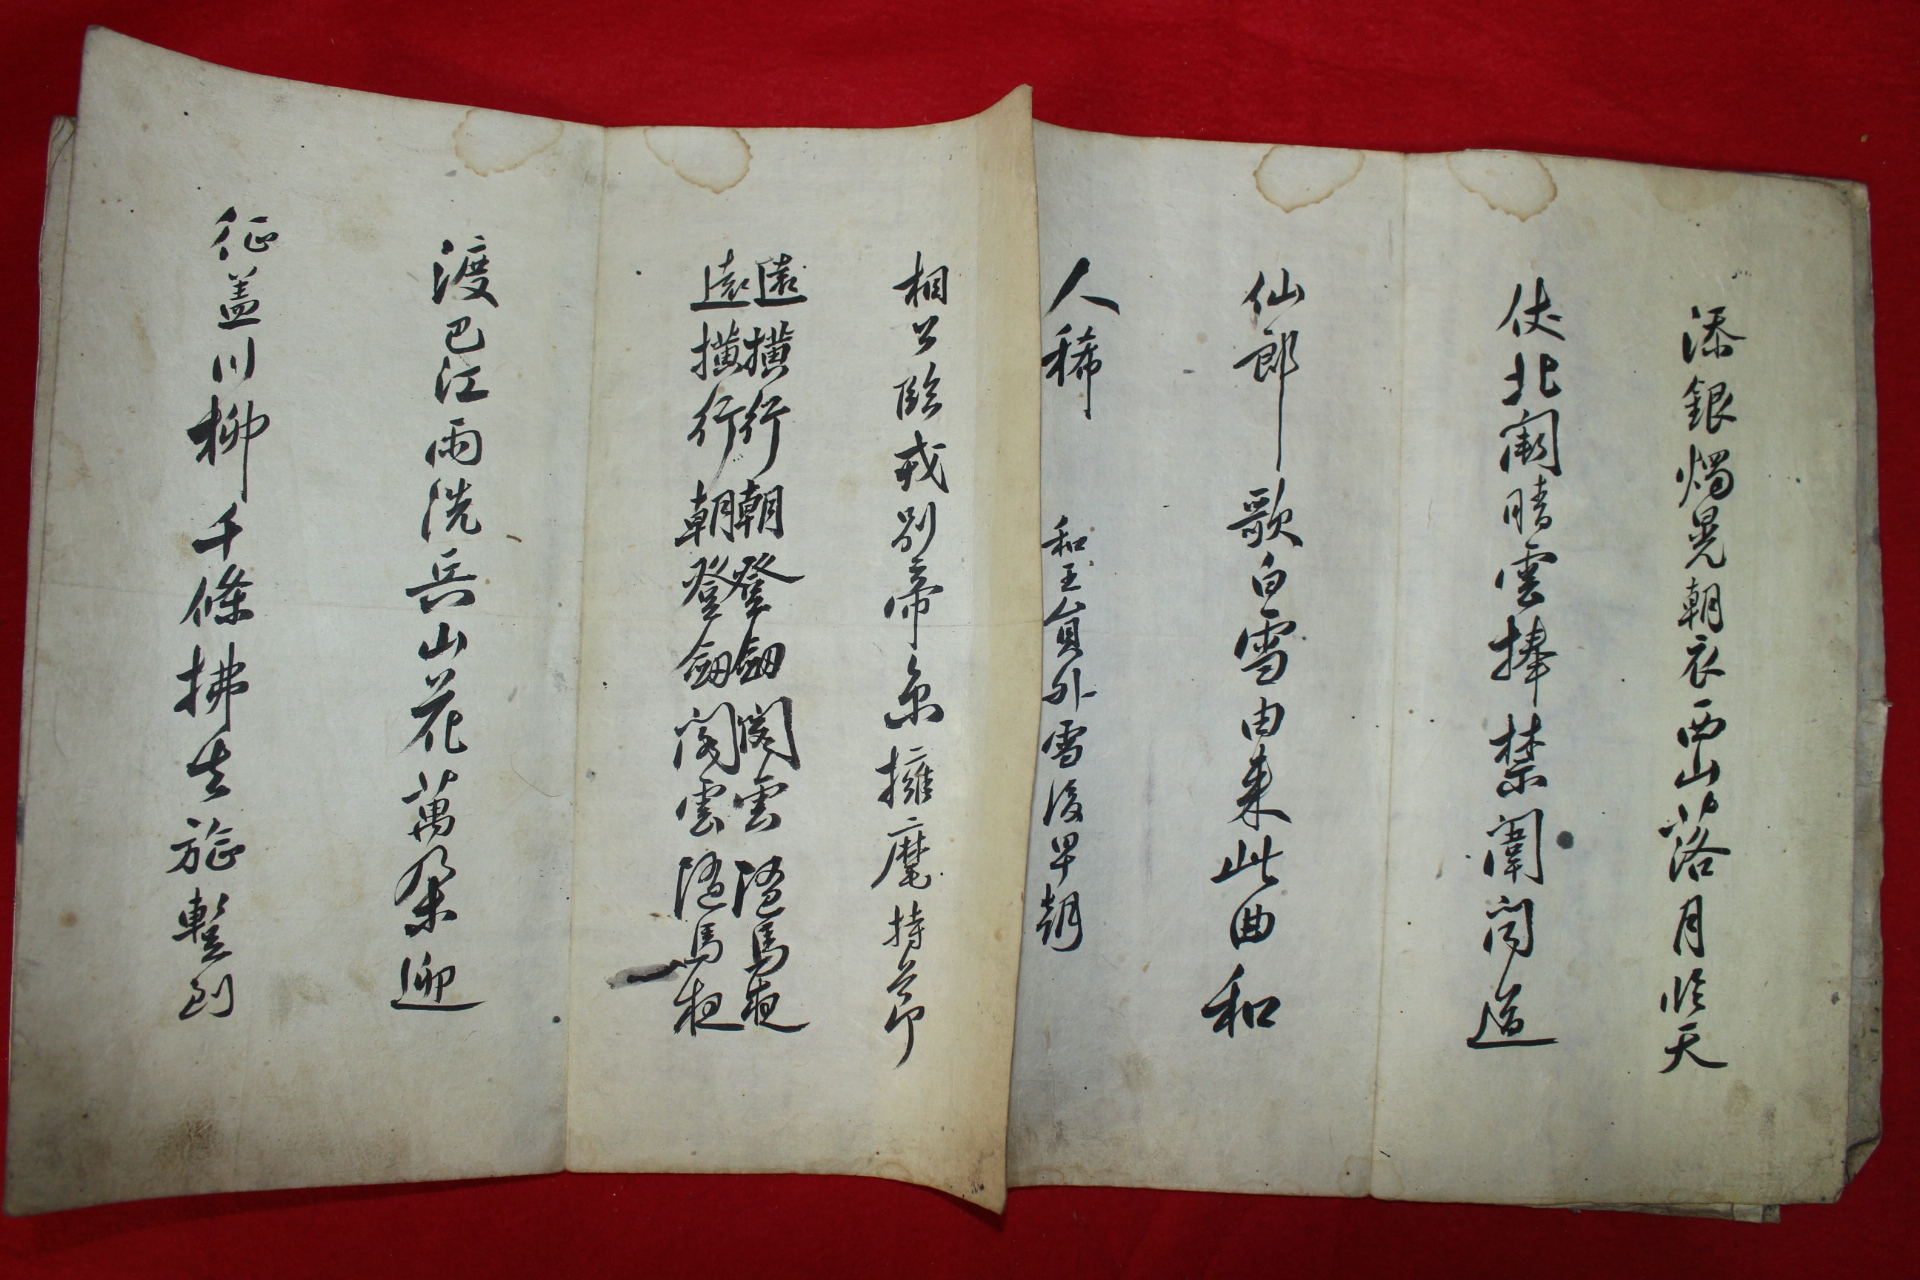 添銀燭晃朝衣西山落月臨天
仗北闕晴雲捧禁闈聞道
仙郎歌白雪由来此曲和
人稀 和王員外雪後早朝
相公臨戎別帝京擁麾持節
遠橫行朝登劒閣雲隨馬夜
遠橫行朝登劒閣雲隨馬夜
渡巴江雨洗兵山花萬朶迎
征盖川柳千條拂去旌暫到